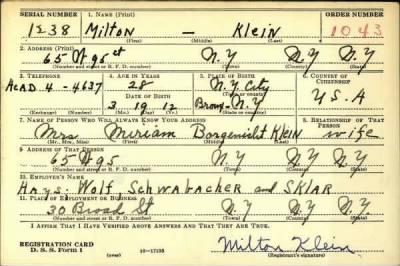 SERIAL NUMBER 1. NAME (Print) ORDER NUMBER
1238 Milton — Klein 1043
(First) (Middle) (Last)
2. ADDRESS (Print)
65 W 95 st N.Y NY NY
(Number and street or R. F. D. number) (Town) (County) (State)
3. TELEPHONE 4. AGE IN YEARS 5. PLACE OF BIRTH 6. COUNTRY OF CITIZENSHIP
ACAD. 4-4637 28 N.Y. City
DATE OF BIRTH U.S.A
3 19 12 Bronx N.Y
(Exchange) (Number) (Mo.) (Day) (Yr.) (State or country)
7. NAME OF PERSON WHO WILL ALWAYS KNOW YOUR ADDRESS 8. RELATIONSHIP OF THAT PERSON
Mrs Miriam Borgenicht Klein wife
(Mr., Mrs., Miss) (First) (Middle) (Last)
9. ADDRESS OF THAT PERSON
65 W 95 N.Y NY N.Y
(Number and street or R. F. D. number) (Town) (County) (State)
10. EMPLOYER'S NAME
Hays, Wolf, Schwabacher and SKLAR
11. PLACE OF EMPLOYMENT OR BUSINESS
30 Broad St N.Y NY N.Y
(Number and street or R. F. D. number) (Town) (County) (State)
I AFFIRM THAT I HAVE VERIFIED ABOVE ANSWERS AND THAT THEY ARE TRUE.
REGISTRATION CARD
D. S. S. Form 1 (over) 16-17105 Milton Klein
(Registrant's signature)